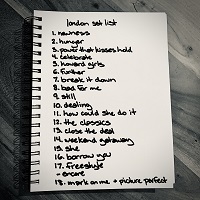 london set list
1. newness
2. hunger
3. power that kisses hold
4. celebrate
5. howard girls
6. further
7. break it down
8. bad for me
9. still
10. destiny
11. how could she do it
12. the classics
13. close the deal
14. weekend getaway
15. she
16. borrow you
17. freestyle
- encore
18. mark on me + picture perfect